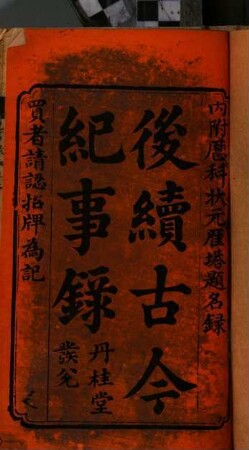 內附歷科狀元雁塔題名錄
後續古今
紀事錄
丹桂堂
發兌
買者請認招牌為記